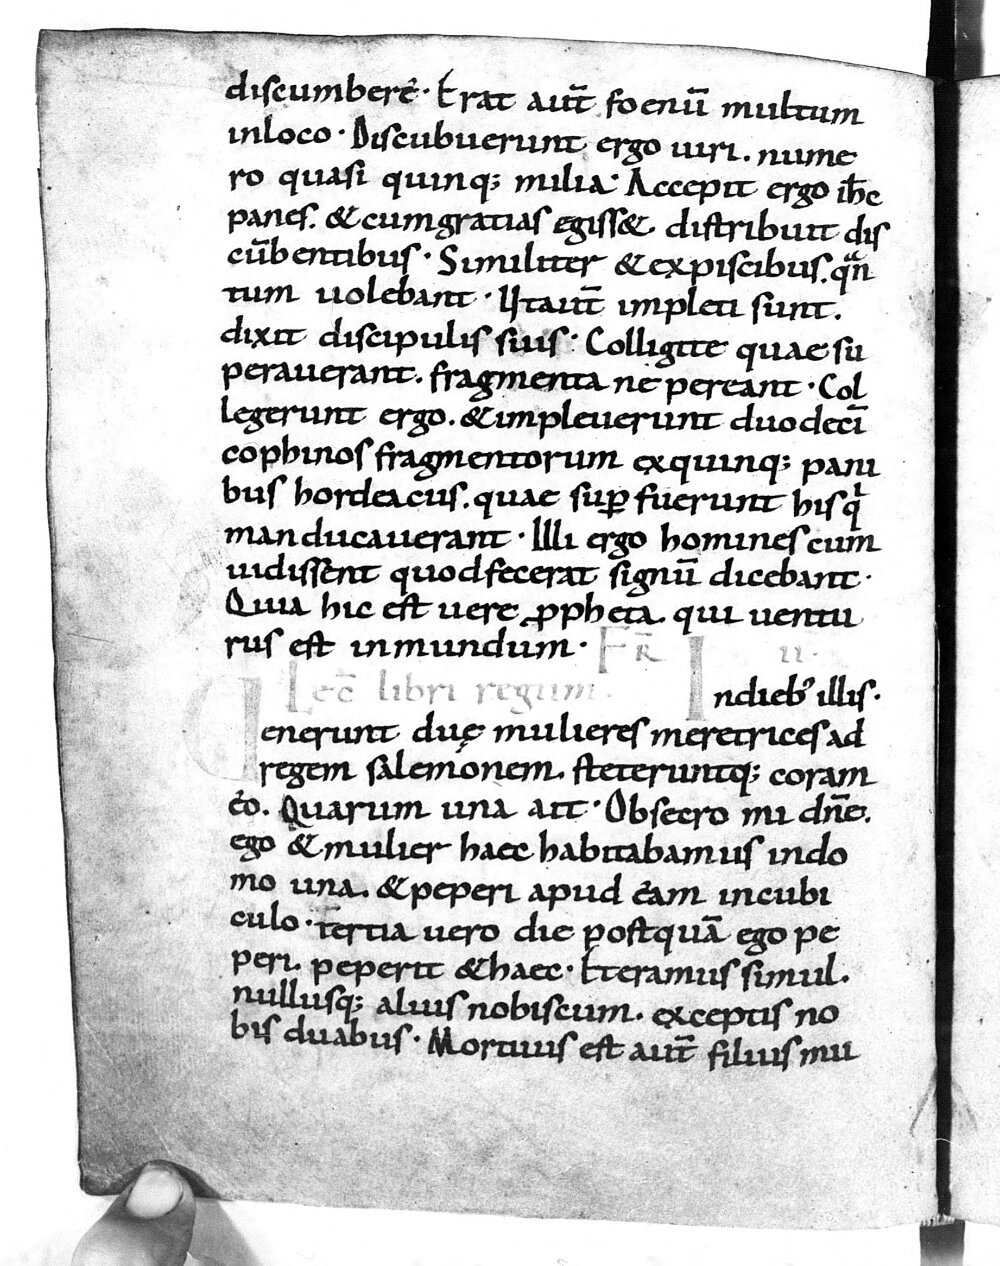 discumbere · Erat aut̄ foenū multum
inloco · Discubuerunt ergo uiri . nume
ro quasi quinq; milia · Accepit ergo ih̄c
panes . & cumgratias egiss& . distribuit dis
cūbentibus · Similiter & expiscibus . qͣn
tum uolebant · Ut aut̄ impleti sunt .
dixit discipulis suis · Colligite quae su
perauerant . fragmenta ne pereant · Col
legerunt ergo . & impleuerunt duodeci̅
cophinos fragmentorum exquinq; pani
bus hordeacus . quae suꝑ fuerunt hisqͥ
manducauerant · Illi ergo homines cum
uidissent quod fecerat signū dicebant ·
Quia hic est uere ꝓpheta . qui uentu
rus est inmundum · FR̄ II ·
Lec̄ libri regum . Indieb᾽ illis ·
Uenerunt duę mulieres meretrices ad
regem salemonem . steteruntq; coram
eo . Quarum una ait · Obsecro mi dn̄e .
ego & mulier haec habitabamus indo
mo una . & peperi apud eam incubi
culo · tertia uero die postquā ego pe
peri . peperit & haec · Eteramus simul .
nullusq; alius nobiscum . exceptis no
bis duabus · Mortuus est aut̄ filius mu